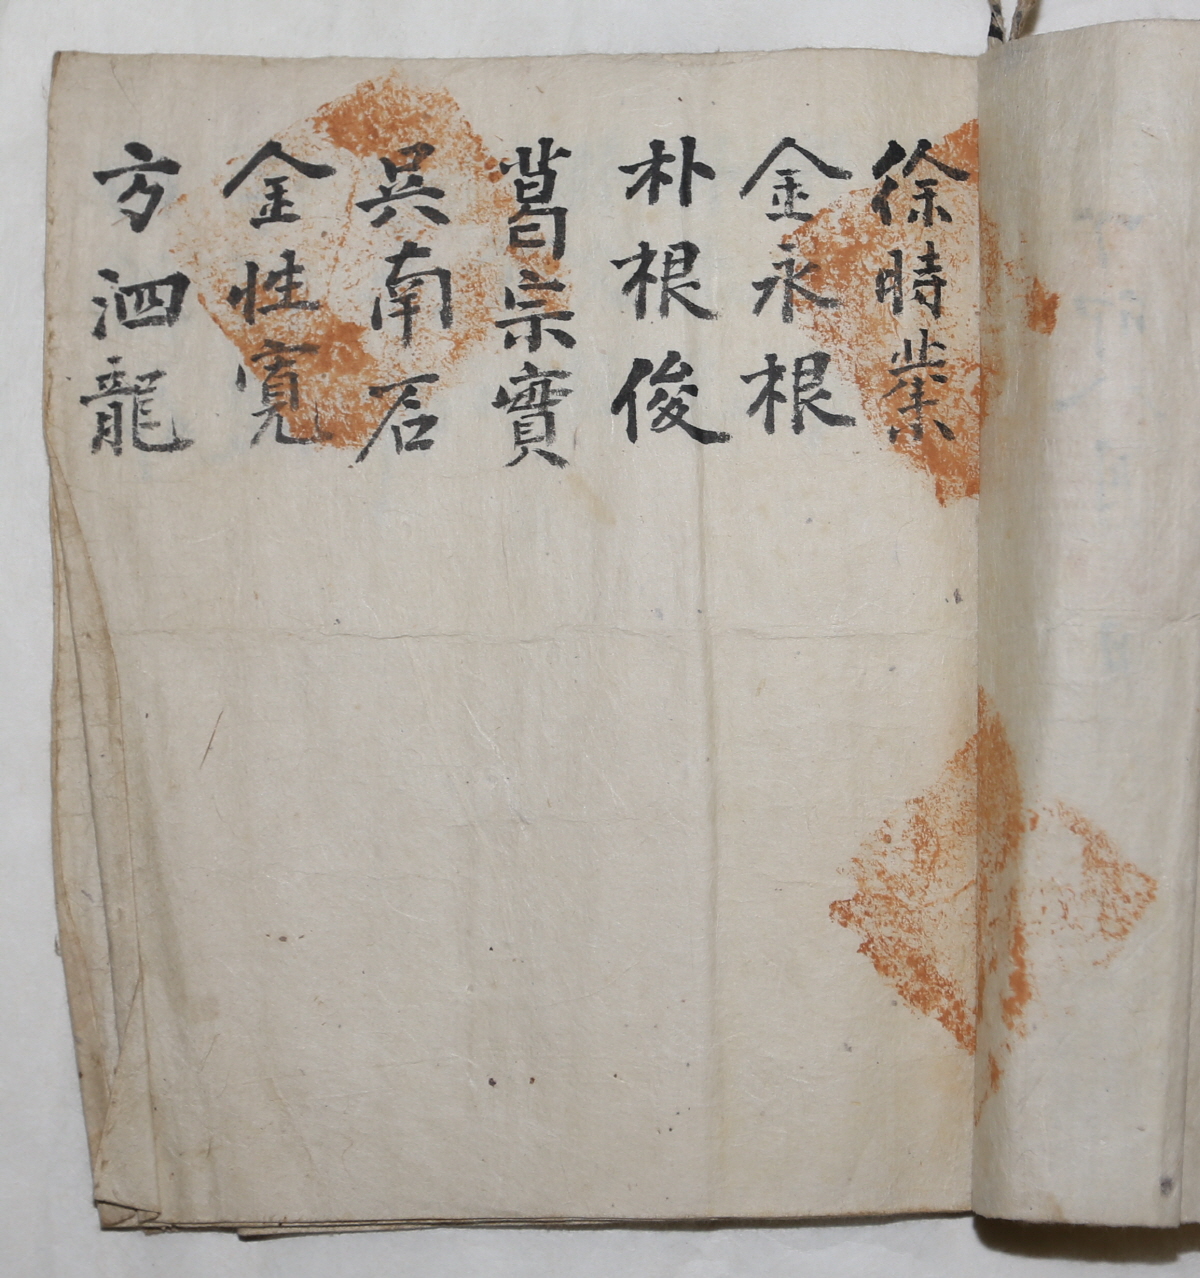 徐時柴
金永根
朴根俊
葛宗實
吳南石
金性寬
方泗龍